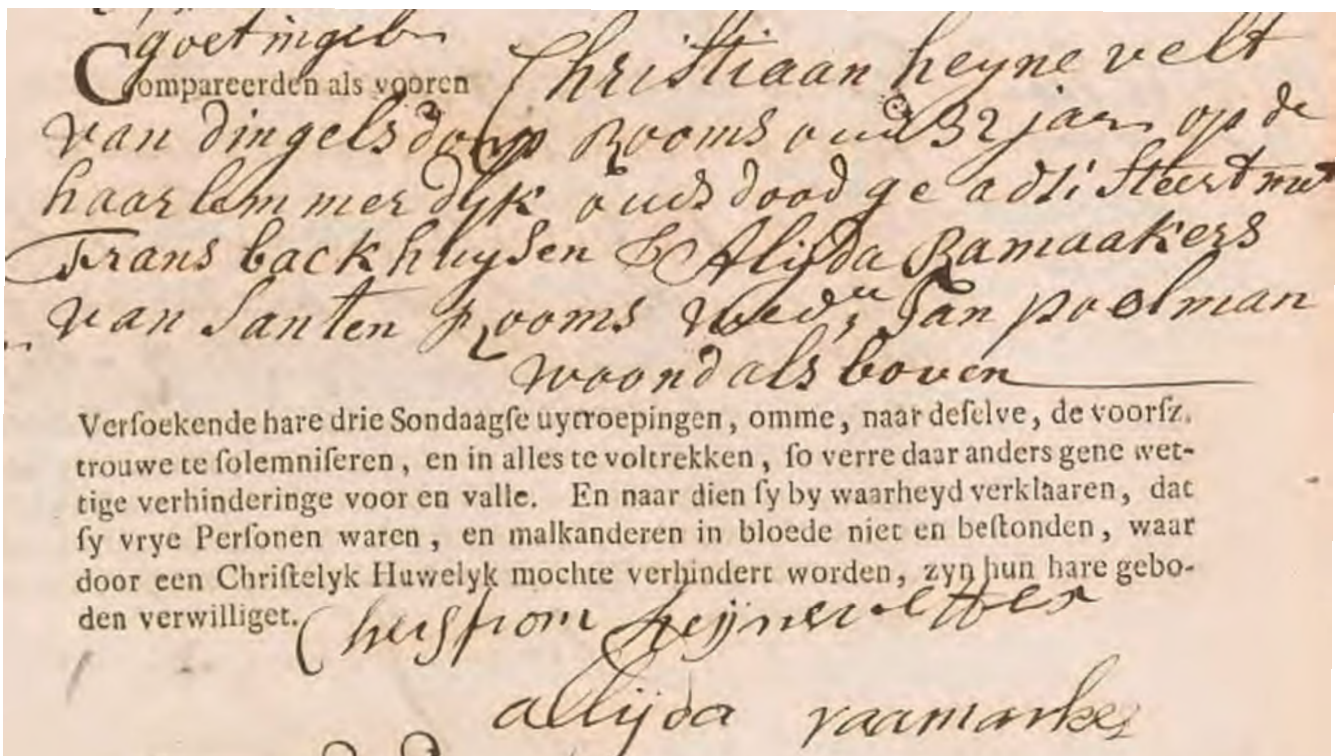 goetingeb
Compareerden als vooren Christiaan heyne velt
van dingelsdorp Rooms oud 32 jar op de
haarlemmer dyk ouds dood ge adsisteert met
Frans backhuysen & Alijda Ramaakers
van Santen Rooms wedu Jan poelman
woond als boven
Verſoekende hare drie Sondaagſe uytroepingen, omme, naar deſelve, de voorſz.
trouwe te ſolemniſeren, en in alles te voltrekken, ſo verre daar anders gene wet-
tige verhinderinge voor en valle. En naar dien ſy by waarheyd verklaaren, dat
ſy vrye Perſonen waren, en malkanderen in bloede niet en beſtonden, waar
door een Chriſtelyk Huwelyk mochte verhindert worden, zyn hun hare gebo-
den verwilliget.
allijda raamarkes